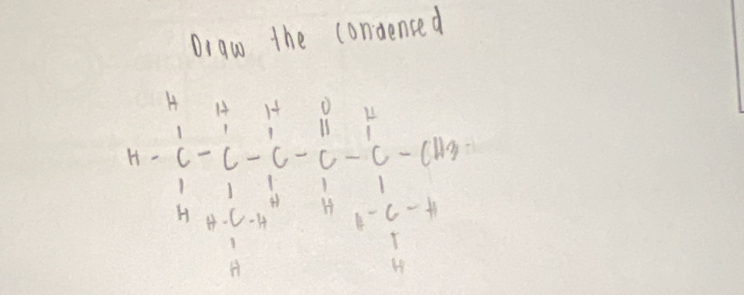 Draw the condensed
H H H O H
H - C - C - C - C - C - CH3
H H-C-H H H H-C-H
H H